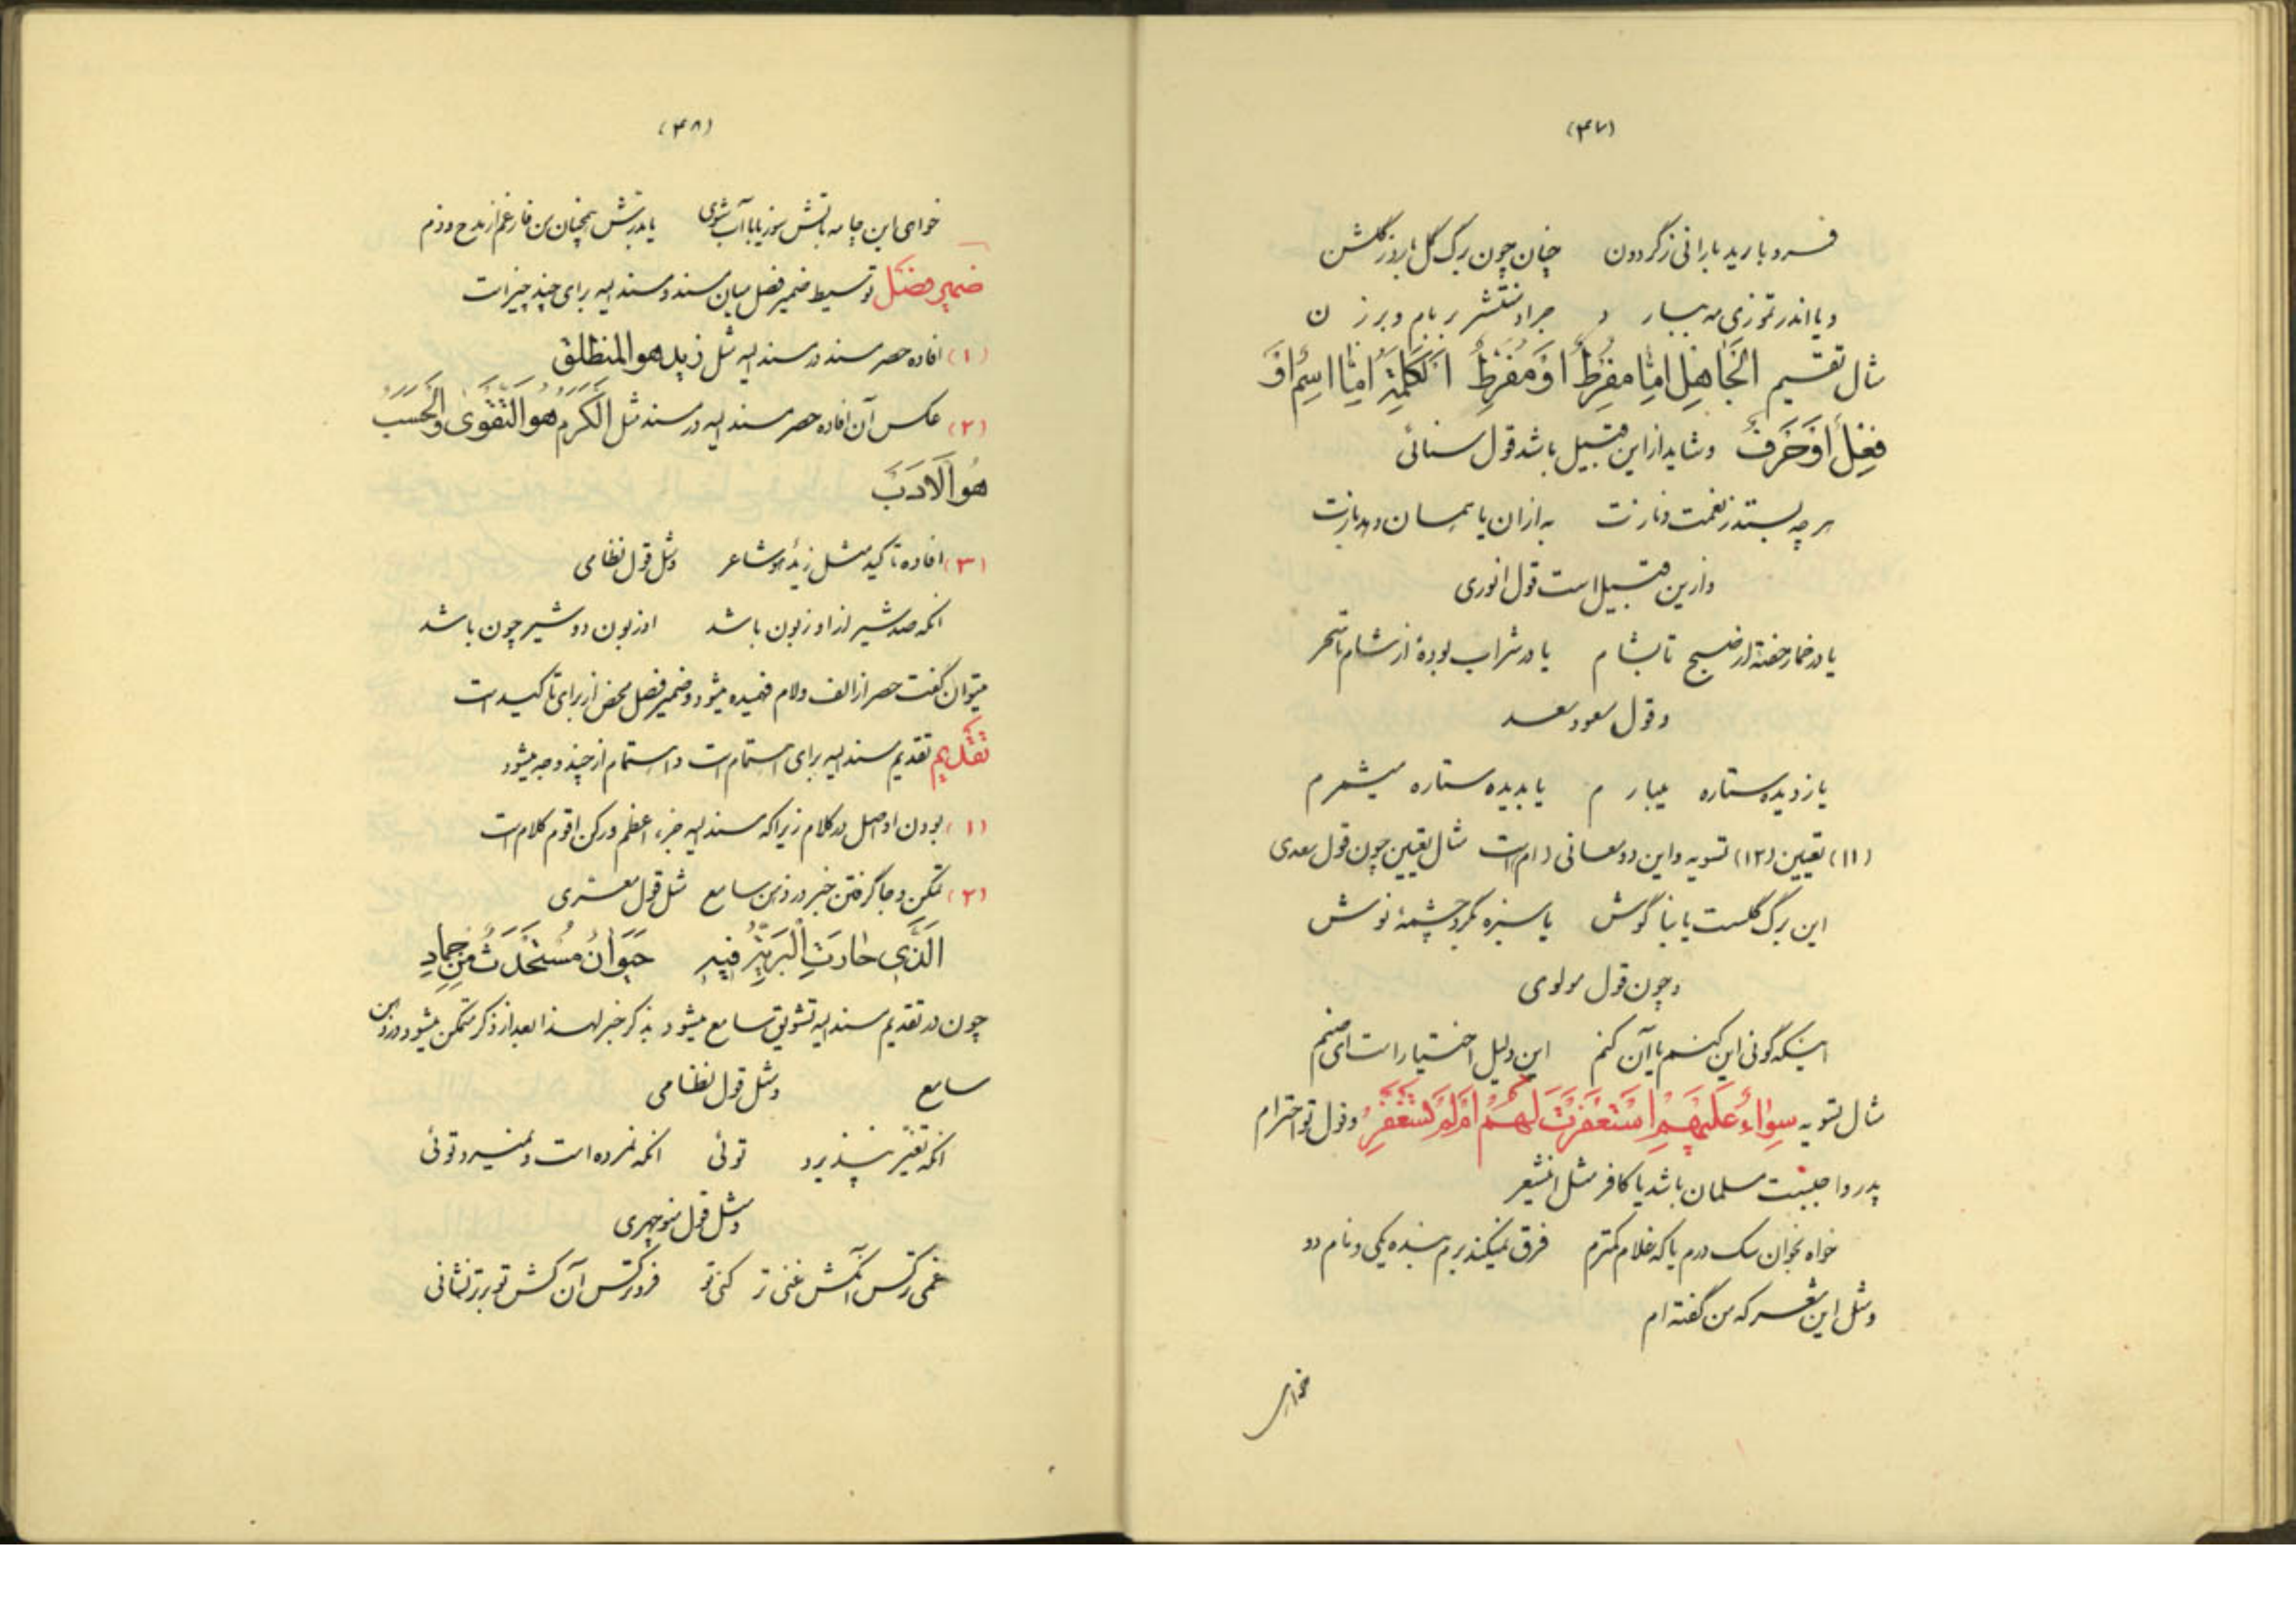 (۴۷)
فرو بارید بارانی ز گردون چنان چون برگ گل بارد ز گلشن
و یا اندر تموزی مه ببارد جراد منتشر بر بام و برزن
مثال تقسیم الجَاهِل اِمّا مفرِطٌ اَوْ مُفَرِّطٌ الکَلِمَةُ اِمّا اسِمٌ اَوْ
فِعْلٌ اَوْ حَرفٌ و شاید از این قبیل باشد قول سنائی
هر چه بستد ز نعمت و نازت به از آن یا همسان دهد بازت
و ازین قبیل است قول انوری
یا در خمار خفتهٔ از صبح تا بشام یا در شراب بودهٔ از شام تا سحر
و قول مسعود سعد
یا ز دیده ستاره میبارم یا بدیده ستاره میشمرم
(۱۱) تعیین (۱۲) تسویه و این دو معانی ام است مثال تعیین چون قول سعدی
این برگ گلست یا بنا گوش یا سبزه بگرد چشمهٔ نوش
و چون قول مولوی
اینکه گوئی این کنم یا آن کنم این دلیل اختیار است ای صنم
مثال تسویه سَواءٌ عَلَیْهِمْ اَسْتَغْفَرْتَ لَهُمْ اَمْ لَمْ تَسْتَغْفِرْ و قول تو احترام
پدر واجبست مسلمان باشد یا کافر مثل این شعر
خواه بخوان سگ درم یا که غلام کمترم فرق نمیکند برم بنده یکی و نام دو
و مثل این شعر که من گفته ام
خواهی
(۴۸)
خواهی این چامه باتش سوز یا با آب شوی یا بدر تش همچنان من فارغم از مدح و ذم
ضمیر فصل توسیط ضمیر فصل میان مسند و مسند الیه برای چند چیز است
(۱) افاده حصر مسند در مسند الیه مثل زید هو المنطلق
(۲) عکس آن افاده حصر مسند الیه در مسند مثل الکَرَمُ هو التَقْویٰ و الحَسَب
هُو الاَدَبَ
(۳) افاده تاکید مثل زیدٌ هو شاعر و مثل قول نظامی
انکه صد شیر از او زبون باشد او زبون دو شیر چون باشد
میتوان گفت حصر از الف و لام فهمیده میشود و ضمیر فصل محض از برای تاکید است
تقدیم تقدیم مسند الیه برای اهتمام است و اهتمام از چند وجه میشود
(۱) بودن او اصل در کلام زیرا که مسند الیه جزء اعظم و رکن اقوم کلام است
(۲) تمکن و جا گرفتن خبر در ذهن سامع مثل قول معری
الَذّی حارَتِ الْبَریّةُ فیهِ حَیَوانٌ مُسْتَحْدَثٌ مِنْ جَمادِ
چون در تقدیم مسند الیه تشویق سامع میشود بذکر خبر لهذا بعد از ذکر متمکن میشود در ذهن
سامع و مثل قول نظامی
انکه تغیّر نپذیرد توئی انکه نمرده است و نمیرد توئی
و مثل قول منوچهری
غمی تر کس آنکش غنی تر کنی تو فروتر کس آن کش تو برتر نشانی